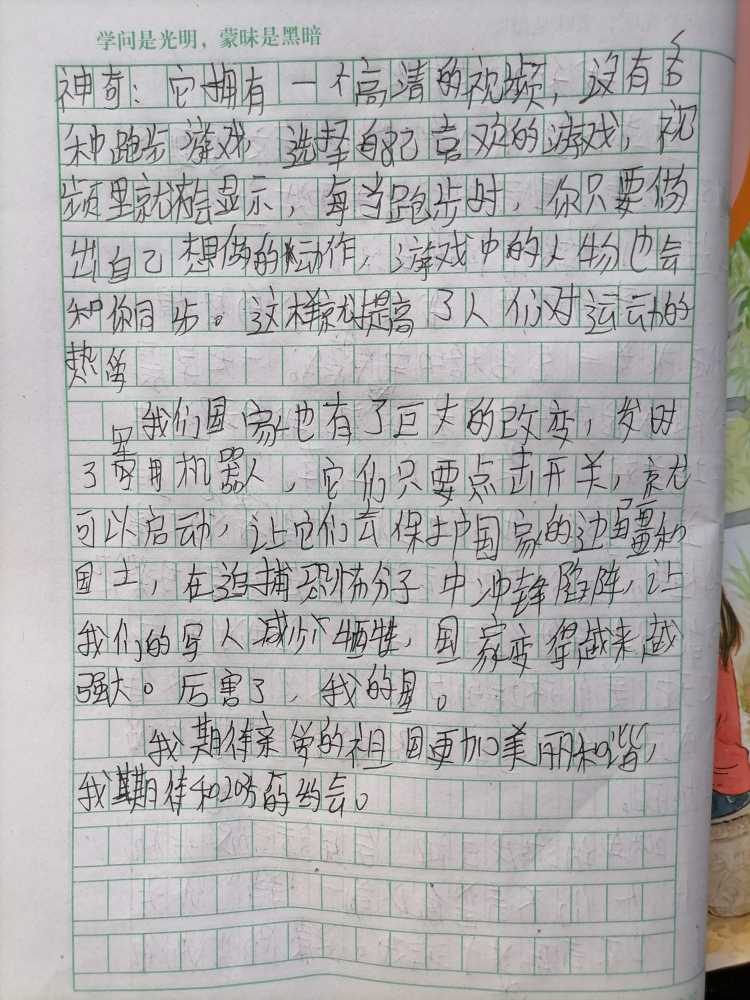 学问是光明，蒙昧是黑暗
神奇：它拥有一个高清的视频，没有各
种跑步游戏，选择自己喜欢的游戏，视
频里就会显示，每当跑步时，你只要做
出自己想做的动作，游戏中的人物也会
和你同步。这样就提高了人们对运动的
热爱
我们国家也有了巨大的改变，发明
了军用机器人，它们只要点击开关，就
可以启动，让它们去保护国家的边疆和
国土，在追捕恐怖分子中冲锋陷阵，让
我们的军人减少牺牲，国家变得越来越
强大。厉害了，我的国。
我期待亲爱的祖国更加美丽和谐，
我期待和20的约会。